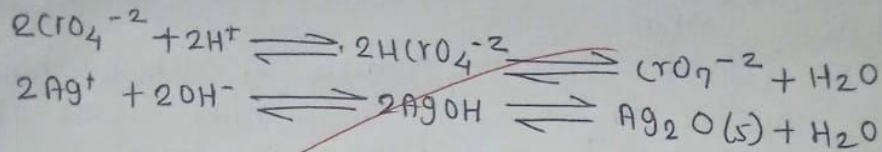 2CrO₄⁻² + 2H⁺ ⇌ 2HCrO₄⁻² ⇌ CrO₇⁻² + H₂O
2Ag⁺ + 2OH⁻ ⇌ 2AgOH ⇌ Ag₂O(s) + H₂O